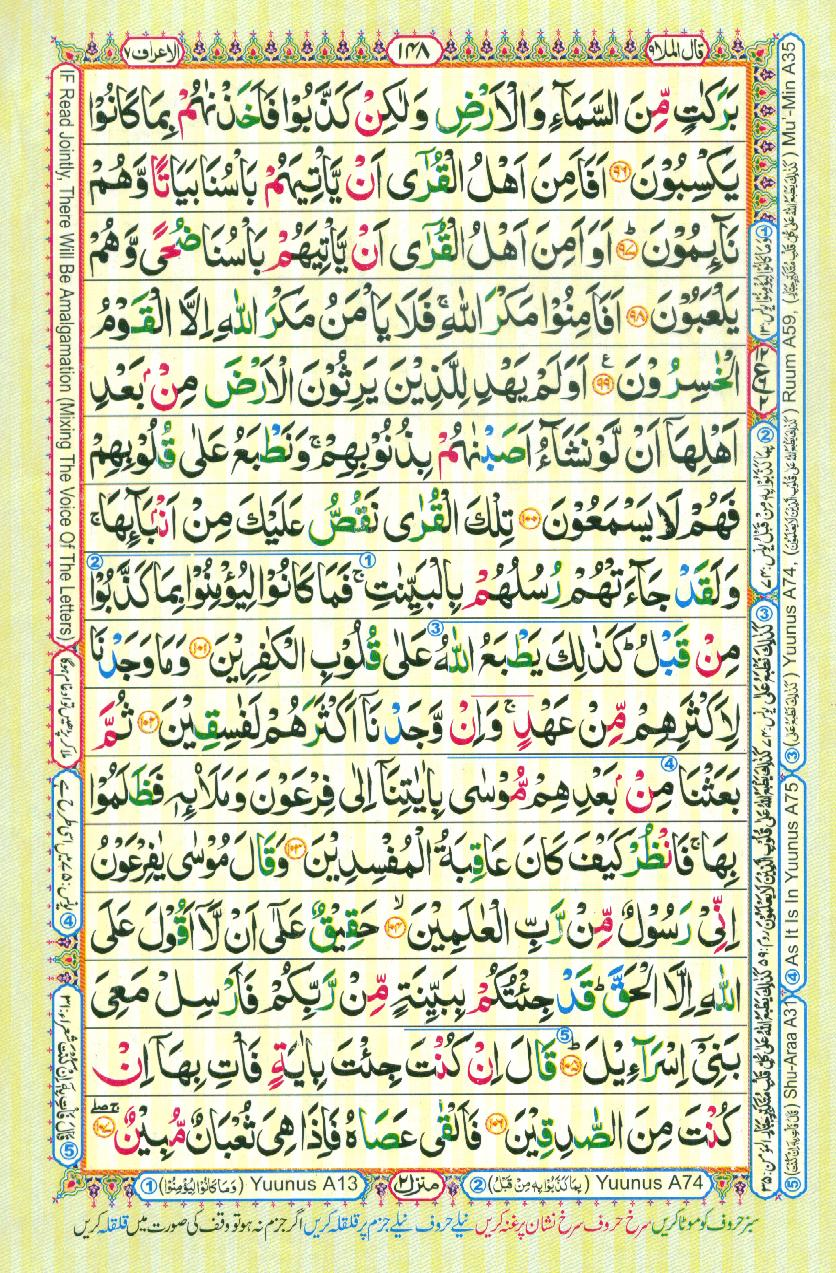 قال الملا ٩
١٤٨
الاعراف ٧
بَرَكٰتٍ مِّنَ السَّمَآءِ وَالْاَرْضِ وَلٰكِنْ كَذَّبُوْا فَاَخَذْنٰهُمْ بِمَا كَانُوْا
يَكْسِبُوْنَ ﴿٩٦﴾ اَفَاَمِنَ اَهْلُ الْقُرٰٓى اَنْ يَّاْتِيَهُمْ بَاْسُنَا بَيَاتًا وَّهُمْ
نَآئِمُوْنَ ؕ﴿٩٧﴾ اَوَاَمِنَ اَهْلُ الْقُرٰٓى اَنْ يَّاْتِيَهُمْ بَاْسُنَا ضُحًى وَّهُمْ
يَلْعَبُوْنَ ﴿٩٨﴾ اَفَاَمِنُوْا مَكْرَ اللّٰهِ ۚ فَلَا يَاْمَنُ مَكْرَ اللّٰهِ اِلَّا الْقَوْمُ
الْخٰسِرُوْنَ ﴿٩٩﴾ ع اَوَلَمْ يَهْدِ لِلَّذِيْنَ يَرِثُوْنَ الْاَرْضَ مِنْۢ بَعْدِ
اَهْلِهَاۤ اَنْ لَّوْ نَشَآءُ اَصَبْنٰهُمْ بِذُنُوْبِهِمْ ۚ وَنَطْبَعُ عَلٰى قُلُوْبِهِمْ
فَهُمْ لَا يَسْمَعُوْنَ ﴿١٠٠﴾ تِلْكَ الْقُرٰى نَقُصُّ عَلَيْكَ مِنْ اَنْۢبَآئِهَا ۚ
وَلَقَدْ جَآءَتْهُمْ رُسُلُهُمْ بِالْبَيِّنٰتِ ۚ ① فَمَا كَانُوْا لِيُؤْمِنُوْا بِمَا كَذَّبُوْا ②
مِنْ قَبْلُ ؕ كَذٰلِكَ يَطْبَعُ اللّٰهُ ③ عَلٰى قُلُوْبِ الْكٰفِرِيْنَ ﴿١٠١﴾ وَمَا وَجَدْنَا
لِاَكْثَرِهِمْ مِّنْ عَهْدٍ ۚ وَاِنْ وَّجَدْنَاۤ اَكْثَرَهُمْ لَفٰسِقِيْنَ ﴿١٠٢﴾ ثُمَّ
بَعَثْنَا مِنْۢ بَعْدِهِمْ ④ مُّوْسٰى بِاٰيٰتِنَاۤ اِلٰى فِرْعَوْنَ وَمَلَا۟ئِهٖ فَظَلَمُوْا
بِهَا ۚ فَانْظُرْ كَيْفَ كَانَ عَاقِبَةُ الْمُفْسِدِيْنَ ﴿١٠٣﴾ وَقَالَ مُوْسٰى يٰفِرْعَوْنُ
اِنِّىْ رَسُوْلٌ مِّنْ رَّبِّ الْعٰلَمِيْنَ ۙ﴿١٠٤﴾ حَقِيْقٌ عَلٰٓى اَنْ لَّاۤ اَقُوْلَ عَلَى
اللّٰهِ اِلَّا الْحَقَّ ؕ قَدْ جِئْتُكُمْ بِبَيِّنَةٍ مِّنْ رَّبِّكُمْ فَاَرْسِلْ مَعِىَ
بَنِىْۤ اِسْرَآءِيْلَ ؕ﴿١٠٥﴾ ⑤ قَالَ اِنْ كُنْتَ جِئْتَ بِاٰيَةٍ فَاْتِ بِهَاۤ اِنْ
كُنْتَ مِنَ الصّٰدِقِيْنَ ﴿١٠٦﴾ فَاَلْقٰى عَصَاهُ فَاِذَا هِىَ ثُعْبَانٌ مُّبِيْنٌ ۚۖ﴿١٠٧﴾
① (وَمَا كَانُوْا لِيُؤْمِنُوْا) Yuunus A13
منزل ٢
② (بِمَا كَذَّبُوْا بِهٖ مِنْ قَبْلُ) Yuunus A74
سبز حروف کو موٹا کریں سرخ حروف سرخ نشان پر غنہ کریں نیلے حروف نیلے جزم پر قلقلہ کریں اگر جزم نہ ہو تو وقف کی صورت میں قلقلہ کریں
IF Read Jointly, There Will Be Amalgamation (Mixing The Voice Of The Letters)
③ (كَذٰلِكَ نَطْبَعُ عَلٰى) Yuunus A74, Ruum A59, Mu'-Min A35
④ As It Is In Yuunus A75
⑤ (قَالَ فَاْتِ بِهٖۤ اِنْ كُنْتَ) Shu-Araa A31